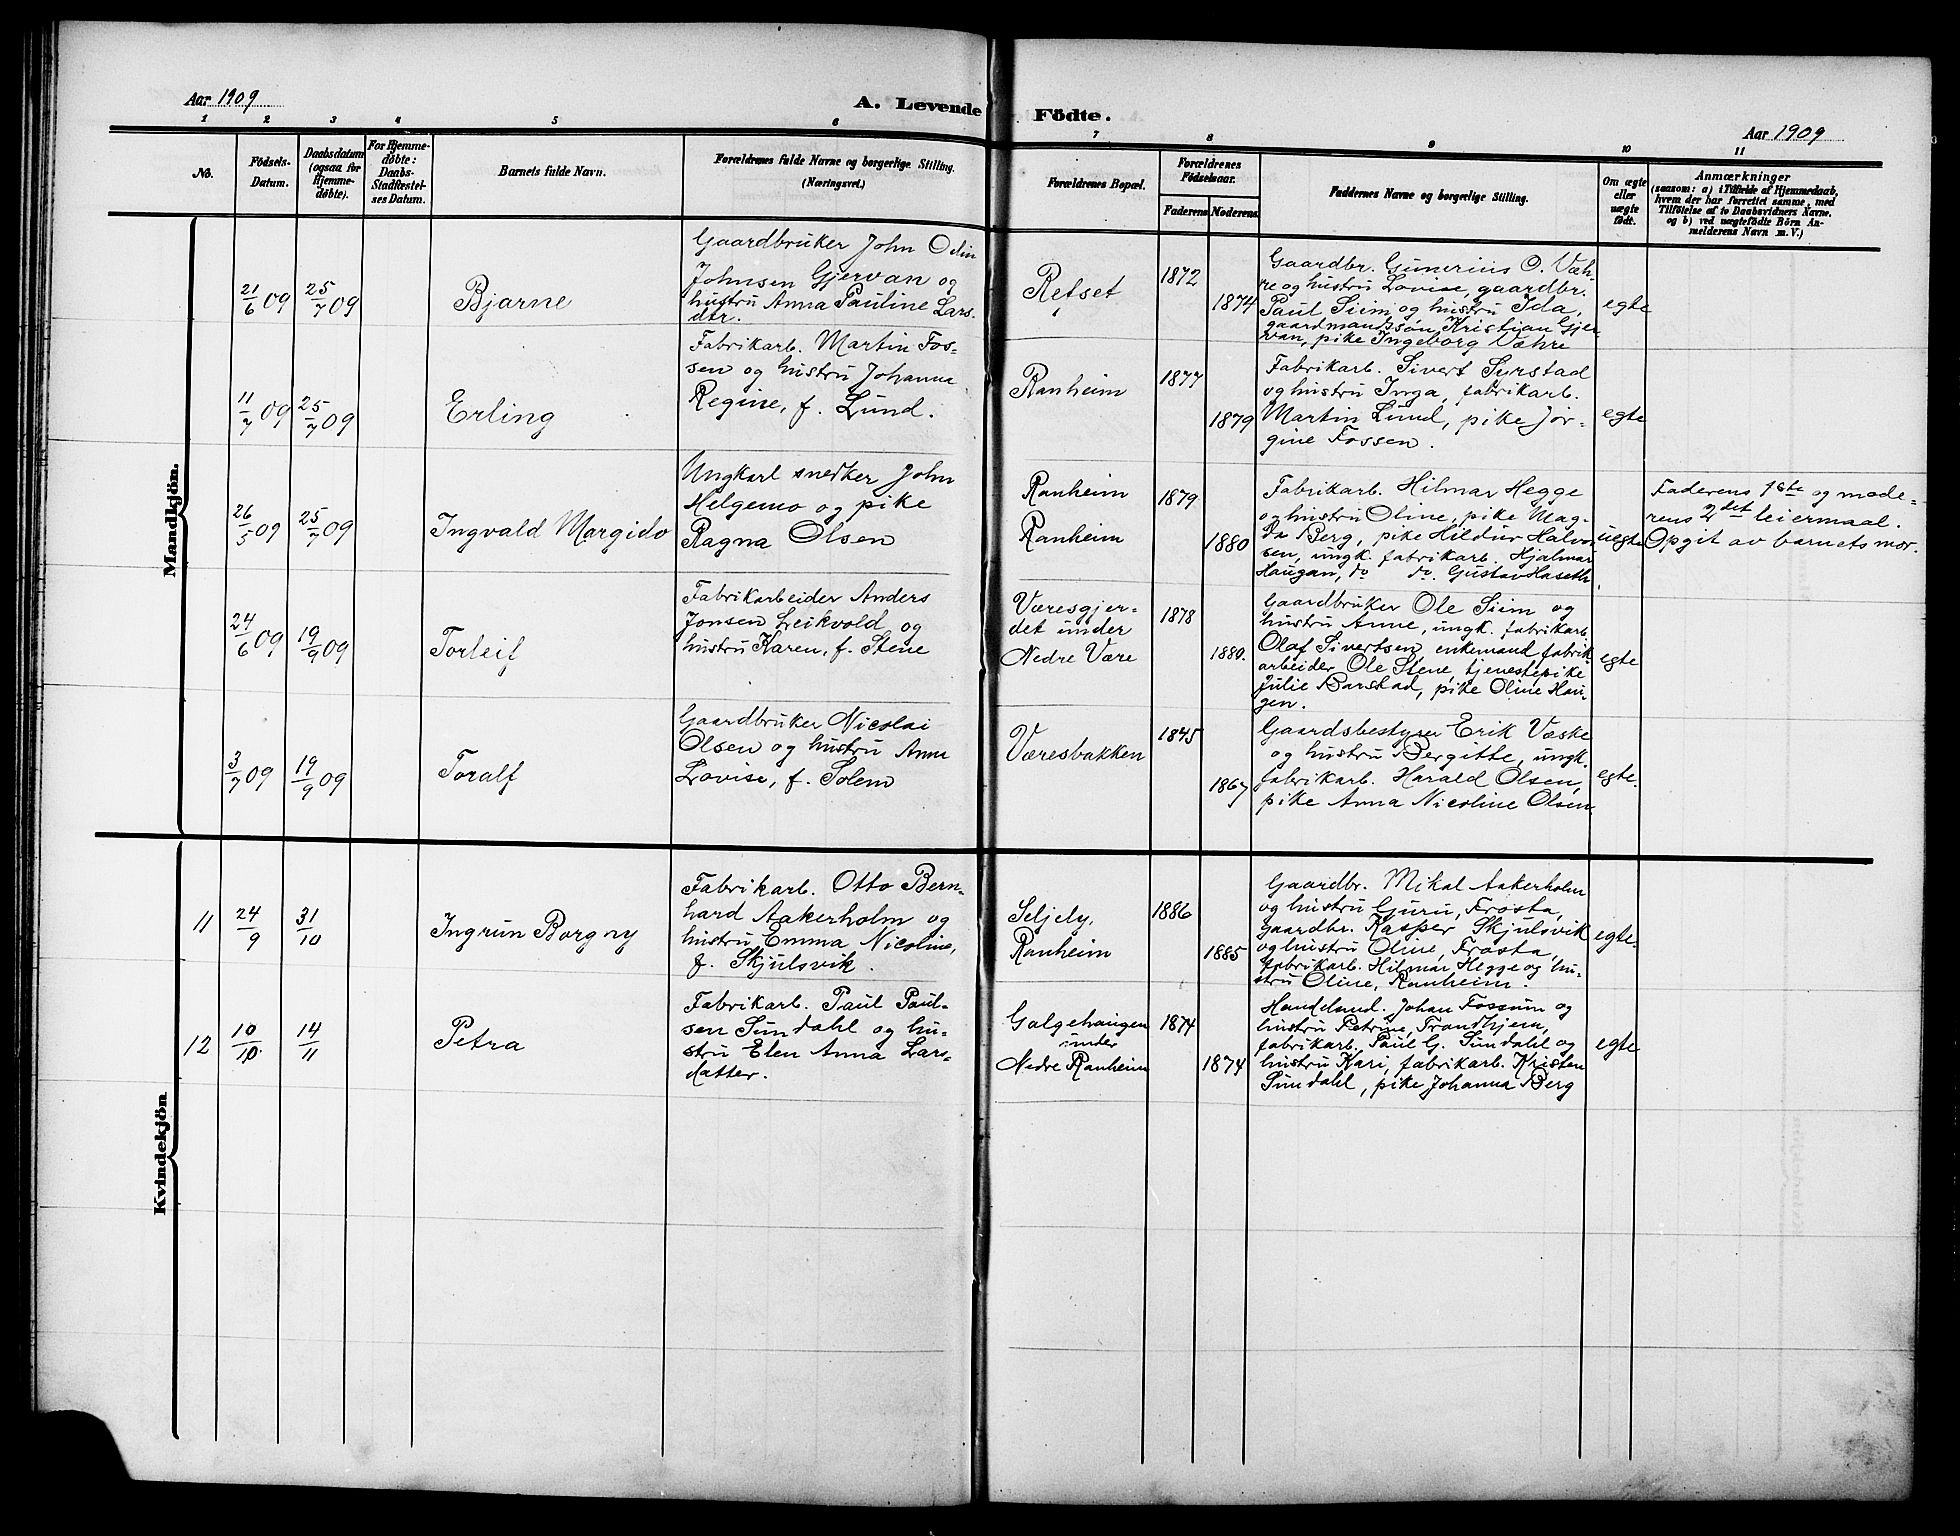 Aar 1909
A. Levende Födte.
Aar 1909
1 2 3 4 5 6 7 8 9 10 11
No.
Födsels-
Datum.
Daabsdatum
(ogsaa for
Hjemme-
døbte).
For Hjemme-
døbte:
Daabs-
Stadfæstel-
ses Datum.
Barnets fulde Navn.
Forældrenes fulde Navne og borgerlige Stilling.
(Næringsvei.)
Forældrenes Bopæl.
Forældrenes
Födselsaar.
Faderens
Moderens
Faddernes Navne og borgerlige Stilling.
Om ægte
eller
uægte
födt.
Anmærkninger
(saasom: a) i Tilfælde af Hjemmedaab,
hvem der har forrettet samme, med
Tilföielse af to Daabsvidners Navne,
og b) ved uægtefödte Börn An-
melderens Navn m. V.)
Mandkjön.
21/6 09
25/7 09
Bjarne
Gaardbruker John Odin
Johnsen Gjervan og
hustru Anna Pauline Lars-
dtr.
Retset
1872
1874
Gaardbr. Gunerius O. Væh-
re og hustru Lovise, gaardbr.
Paul Siem og hustru Ida,
gaardmandssøn Kristian Gjer-
van, pike Ingeborg Væhre
egte
11/7 09
25/7 09
Erling
Fabrikarb. Martin Fos-
sen og hustru Johanna
Regine, f. Lund.
Ranheim
1877
1879
Fabrikarb. Sivert Syrstad
og hustru Inga, fabrikarb.
Martin Lund, pike Jør-
gine Fossen.
egte
26/5 09
25/7 09
Ingvald Margido
Ungkarl snedker John
Helgemo og pike
Ragna Olsen
Ranheim
Ranheim
1879
1880
Fabrikarb. Hilmar Hegge
og hustru Oline, pike Mag-
da Berg, pike Hildur Halvor-
sen, ungk. fabrikarb. Hjalmar
Haugan, do do. Gustav Haseth.
uegte
Faderens 1ste og mode-
rens 2det leiermaal.
Opgit av barnets mor.
24/6 09
19/9 09
Torleif
Fabrikarbeider Anders
Jonsen Leikvold og
hustru Karen, f. Stene
Væresgjer-
det under
Nedre Være
1878
1880.
Gaardbruker Ole Siem og
hustru Anne, ungk. fabrikarb.
Olaf Sivertsen, enkemand fabrik-
arbeider Ole Stene, tjenestepike
Julie Barstad, pike Oline Hau-
gen.
egte
3/7 09
19/9 09
Toralf
Gaardbruker Nicolai
Olsen og hustru Anna
Lovise, f. Solem
Væresbakken
1845
1867
Gaardsbestyrer Erik Væske
og hustru Bergitte, ungk.
fabrikarb. Harald Olsen,
pike Anna Nicoline Olsen.
egte.
Kvindekjön
11
24/9
31/10
Ingrun Borgny
Fabrikarb. Otto Bern-
hard Aakerholm og
hustru Emma Nicoline,
f. Skjulsvik.
Seljely,
Ranheim
1886
1885
Gaardbr. Mikal Aakerholm
og hustru Guru, Frosta,
gaardbr. Kasper Skjulsvik
og hustru Oline, Frosta,
fabrikarb. Hilmar Hegge og hu-
stru Oline, Ranheim.
egte.
12
10/10.
14/11
Petra
Fabrikarb. Paul Paul-
sen Sundahl og hu-
stru Elen Anna Lars-
datter.
Galgehaugen
under
Nedre Ranheim
1874
1874
Handelsmd. Johan Fossum og
hustru Petrine, Trondhjem,
fabrikarb. Paul G. Sundahl og
hustru Kari, fabrikarb. Kristen
Sundahl, pike Johanna Berg
egte